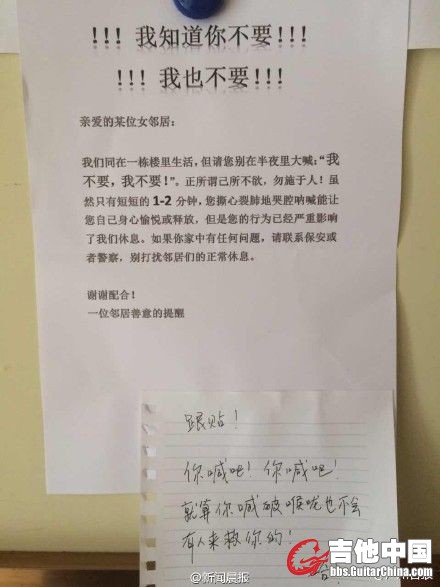 !!! 我知道你不要!!!
!!! 我也不要!!!
亲爱的某位女邻居：
我们同在一栋楼里生活，但请您别在半夜里大喊：“我
不要，我不要！”。正所谓己所不欲，勿施于人！虽
然只有短短的 1-2 分钟，您撕心裂肺地哭腔呐喊能让
您自己身心愉悦或释放，但是您的行为已经严重影响
了我们休息。如果你家中有任何问题，请联系保安或
者警察，别打扰邻居们的正常休息。
谢谢配合！
一位邻居善意的提醒
跟贴！
你喊吧！你喊吧！
就算你喊破喉咙也不会
有人来救你的！
@新闻晨报
吉他中国
bbs.GuitarChina.com